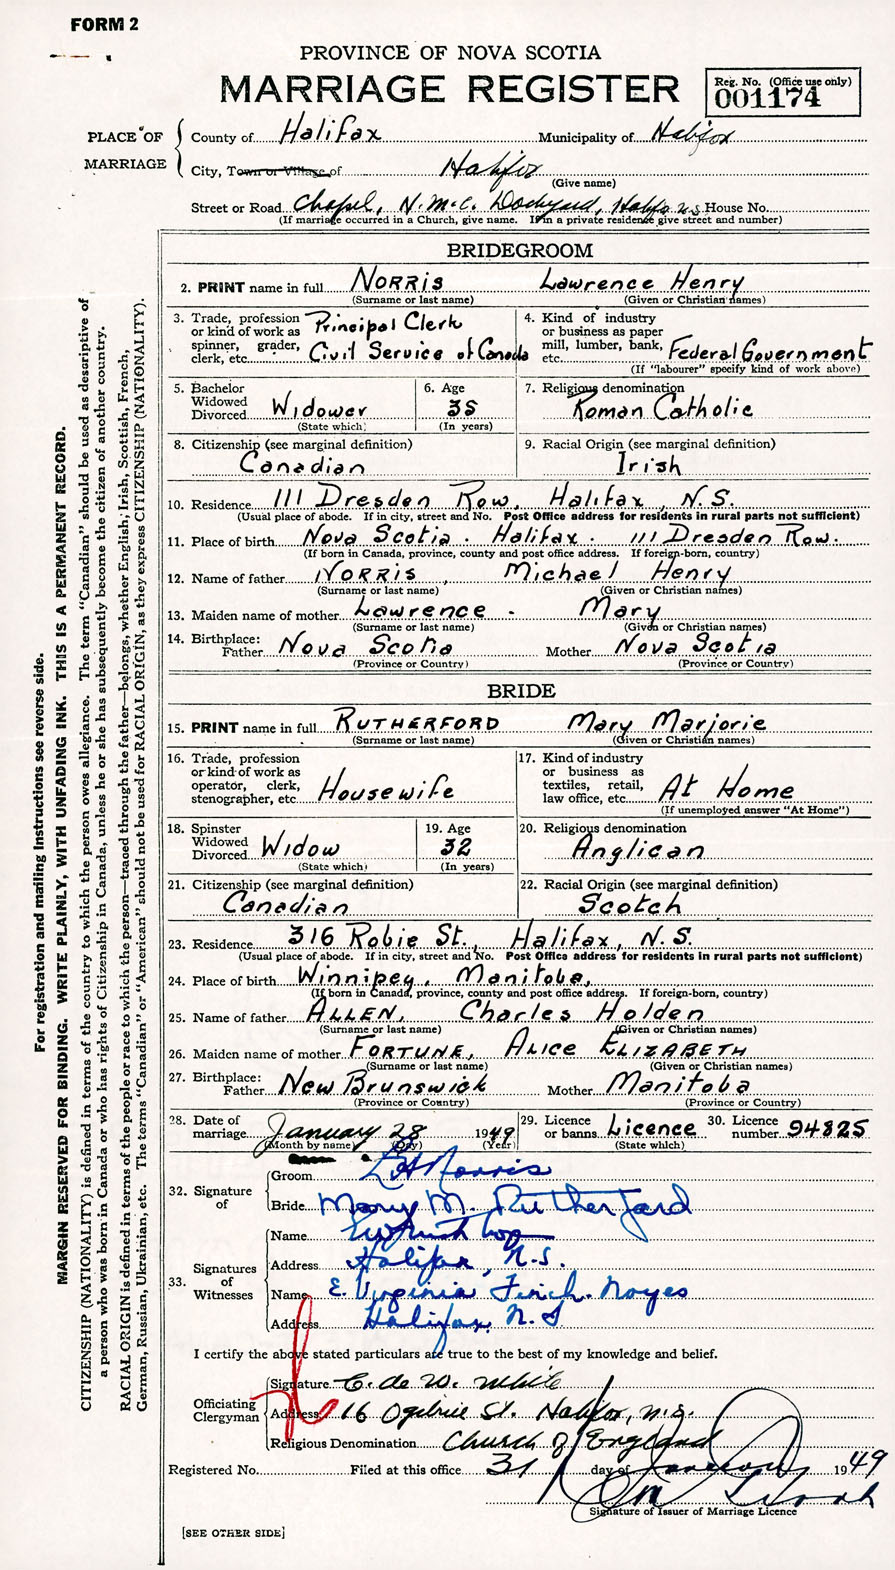 FORM 2
PROVINCE OF NOVA SCOTIA
MARRIAGE REGISTER
Reg. No. (Office use only)
001174
PLACE OF MARRIAGE
County of Halifax Municipality of Halifax
City, Town or Village of Halifax
(Give name)
Street or Road Chapel, H.M.C. Dockyard, Halifax N.S. House No.
(If marriage occurred in a Church, give name. If in a private residence give street and number)
BRIDEGROOM
2. PRINT name in full NORRIS Lawrence Henry
(Surname or last name) (Given or Christian names)
3. Trade, profession or kind of work as spinner, grader, clerk, etc. Principal Clerk Civil Service of Canada
4. Kind of industry or business as paper mill, lumber, bank, etc. Federal Government
(If "labourer" specify kind of work above)
5. Bachelor Widowed Divorced Widower
(State which)
6. Age 35
(In years)
7. Religious denomination
Roman Catholic
8. Citizenship (see marginal definition)
Canadian
9. Racial Origin (see marginal definition)
Irish
10. Residence 111 Dresden Row, Halifax, N.S.
(Usual place of abode. If in city, street and No. Post Office address for residents in rural parts not sufficient)
11. Place of birth Nova Scotia. Halifax. 111 Dresden Row.
(If born in Canada, province, county and post office address. If foreign-born, country)
12. Name of father NORRIS, Michael Henry
(Surname or last name) (Given or Christian names)
13. Maiden name of mother Lawrence - Mary
(Surname or last name) (Given or Christian names)
14. Birthplace: Father Nova Scotia Mother Nova Scotia
(Province or Country) (Province or Country)
BRIDE
15. PRINT name in full RUTHERFORD Mary Marjorie
(Surname or last name) (Given or Christian names)
16. Trade, profession or kind of work as operator, clerk, stenographer, etc. Housewife
17. Kind of industry or business as textiles, retail, law office, etc. At Home
(If unemployed answer "At Home")
18. Spinster Widowed Divorced Widow
(State which)
19. Age 32
(In years)
20. Religious denomination
Anglican
21. Citizenship (see marginal definition)
Canadian
22. Racial Origin (see marginal definition)
Scotch
23. Residence 316 Robie St., Halifax, N.S.
(Usual place of abode. If in city, street and No. Post Office address for residents in rural parts not sufficient)
24. Place of birth Winnipeg, Manitoba,
(If born in Canada, province, county and post office address. If foreign-born, country)
25. Name of father ALLEN, Charles Holden
(Surname or last name) (Given or Christian names)
26. Maiden name of mother FORTUNE, ALICE ELIZABETH
(Surname or last name) (Given or Christian names)
27. Birthplace: Father New Brunswick Mother Manitoba
(Province or Country) (Province or Country)
28. Date of marriage January 28 1949
(Month by name) (Day) (Year)
29. Licence or banns Licence
(State which)
30. Licence number 94825
32. Signature of
Groom L H Norris
Bride Mary M. Rutherford
33. Signatures of Witnesses
Name
Address Halifax, N.S.
Name E. Virginia Finch-Noyes
Address Halifax, N.S
I certify the above stated particulars are true to the best of my knowledge and belief.
Officiating Clergyman
Signature C. de W. White
Address 16 Ogilvie St. Halifax, N.S.
Religious Denomination Church of England
Registered No. Filed at this office 31 day of January 1949
Signature of Issuer of Marriage Licence
[SEE OTHER SIDE]
For registration and mailing instructions see reverse side.
MARGIN RESERVED FOR BINDING. WRITE PLAINLY, WITH UNFADING INK. THIS IS A PERMANENT RECORD.
CITIZENSHIP (NATIONALITY) is defined in terms of the country to which the person owes allegiance. The term "Canadian" should be used as descriptive of
a person who was born in Canada or who has rights of Citizenship in Canada, unless he or she has subsequently become the citizen of another country.
RACIAL ORIGIN is defined in terms of the people or race to which the person—traced through the father—belongs, whether English, Irish, Scottish, French,
German, Russian, Ukrainian, etc. The terms "Canadian" or "American" should not be used for RACIAL ORIGIN, as they express CITIZENSHIP (NATIONALITY).